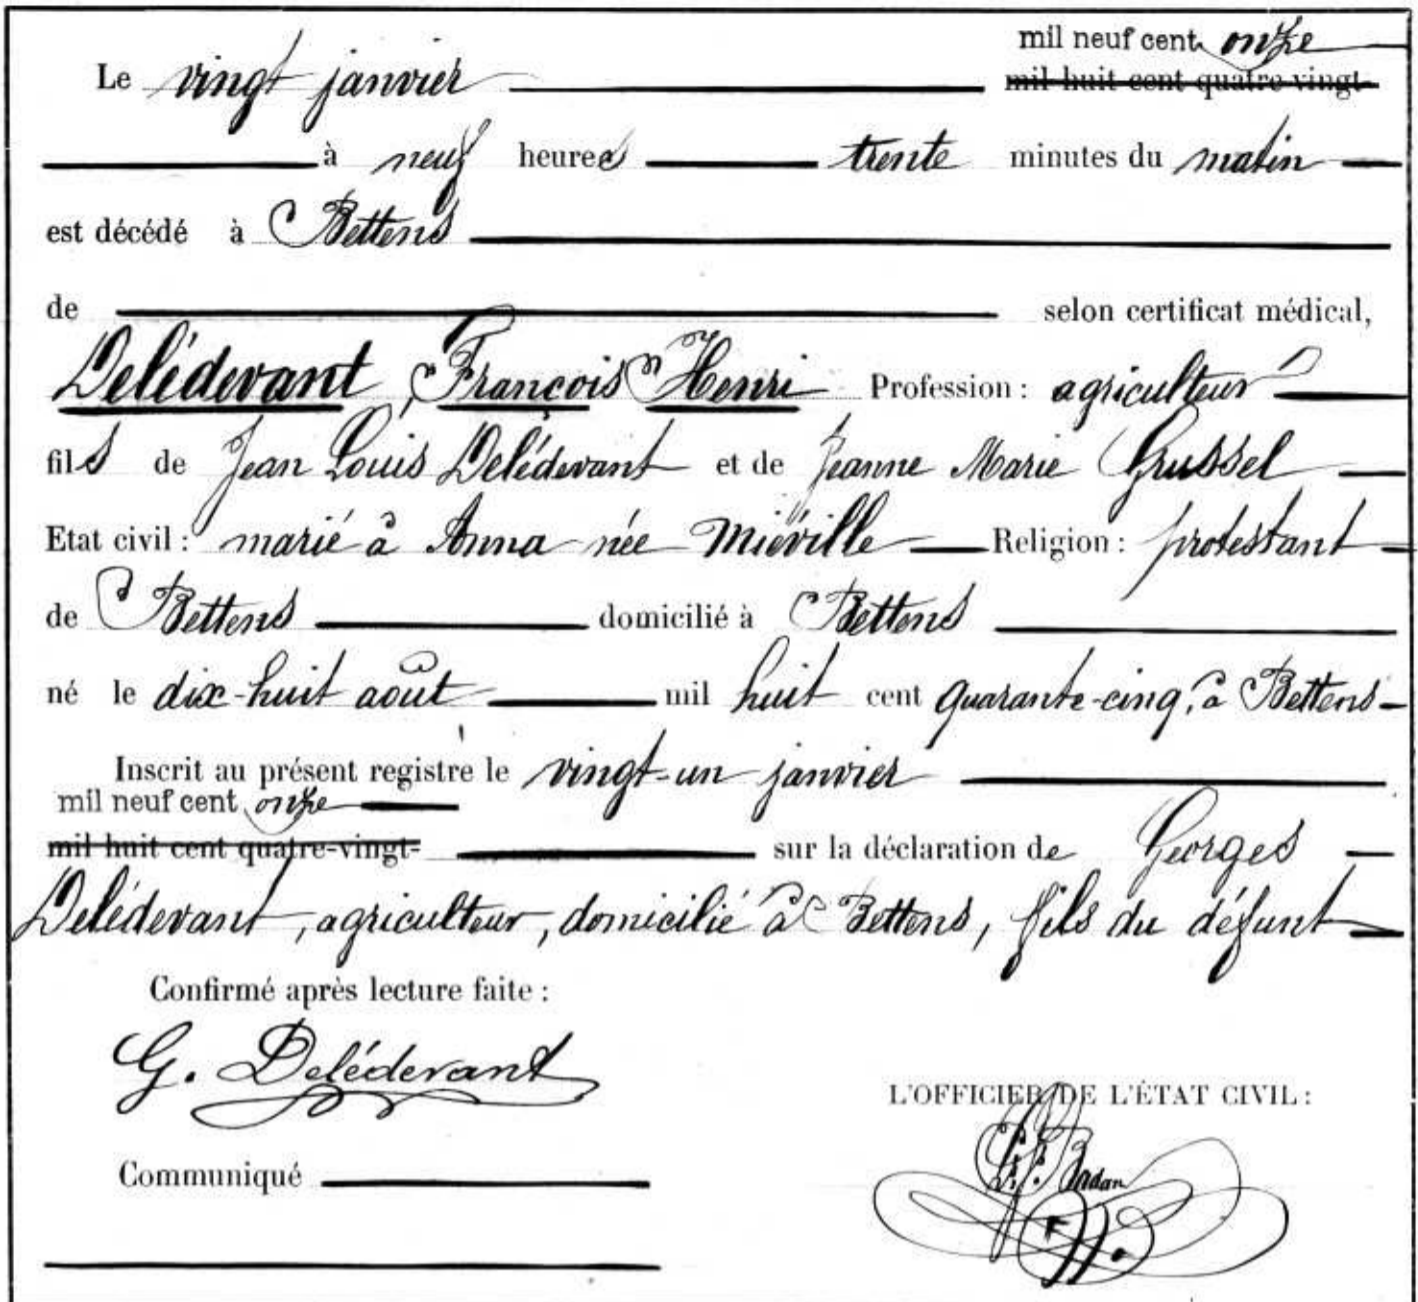 mil neuf cent onze
Le vingt janvier mil huit cent quatre-vingt-
à neuf heures trente minutes du matin
est décédé à Bettens
de selon certificat médical,
Delédevant, François Henri Profession : agriculteur
fils de Jean Louis Delédevant et de Jeanne Marie Grussel
Etat civil : marié à Anna née Miéville Religion : protestant
de Bettens domicilié à Bettens
né le dix-huit août mil huit cent quarante-cinq, à Bettens
Inscrit au présent registre le vingt-un janvier
mil neuf cent onze
mil huit cent quatre-vingt- sur la déclaration de Georges
Delédevant, agriculteur, domicilié à Bettens, fils du défunt
Confirmé après lecture faite :
G. Delédevant
L'OFFICIER DE L'ÉTAT CIVIL :
Badan
Communiqué